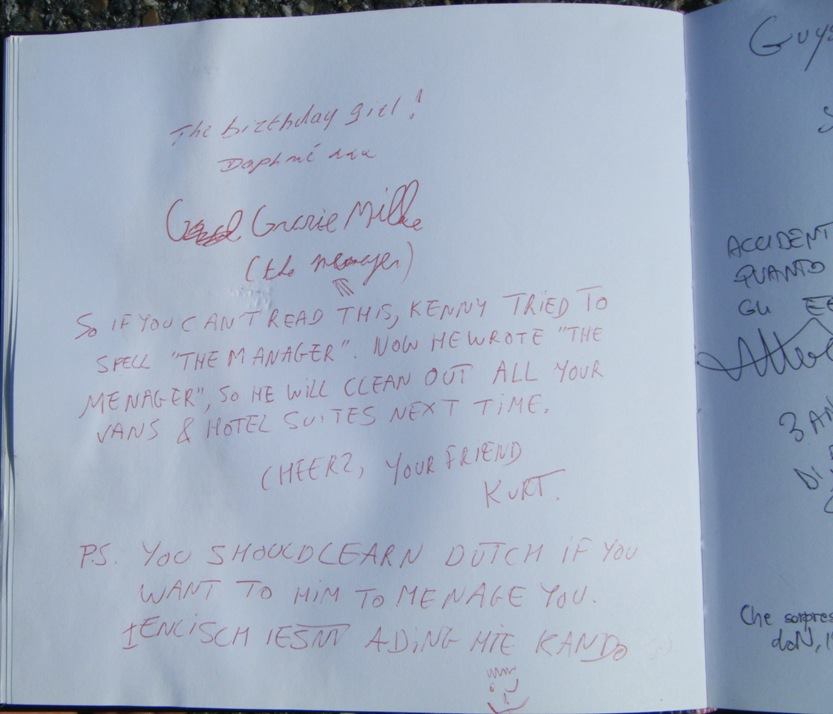 The birthday girl!
Daphné xxx
Grazie Mille
(the menager)
SO IF YOU CAN'T READ THIS, KENNY TRIED TO
SPELL "THE MANAGER". NOW HE WROTE "THE
MENAGER", SO HE WILL CLEAN OUT ALL YOUR
VANS & HOTEL SUITES NEXT TIME.
CHEERZ, YOUR FRIEND
KURT.
P.S. YOU SHOULD LEARN DUTCH IF YOU
WANT TO HIM TO MENAGE YOU.
IENGISCH IESNT ADING HIE KANDO
Guys
ACCIDENT
QUANTO
Gli
3
DI
Che sorpres